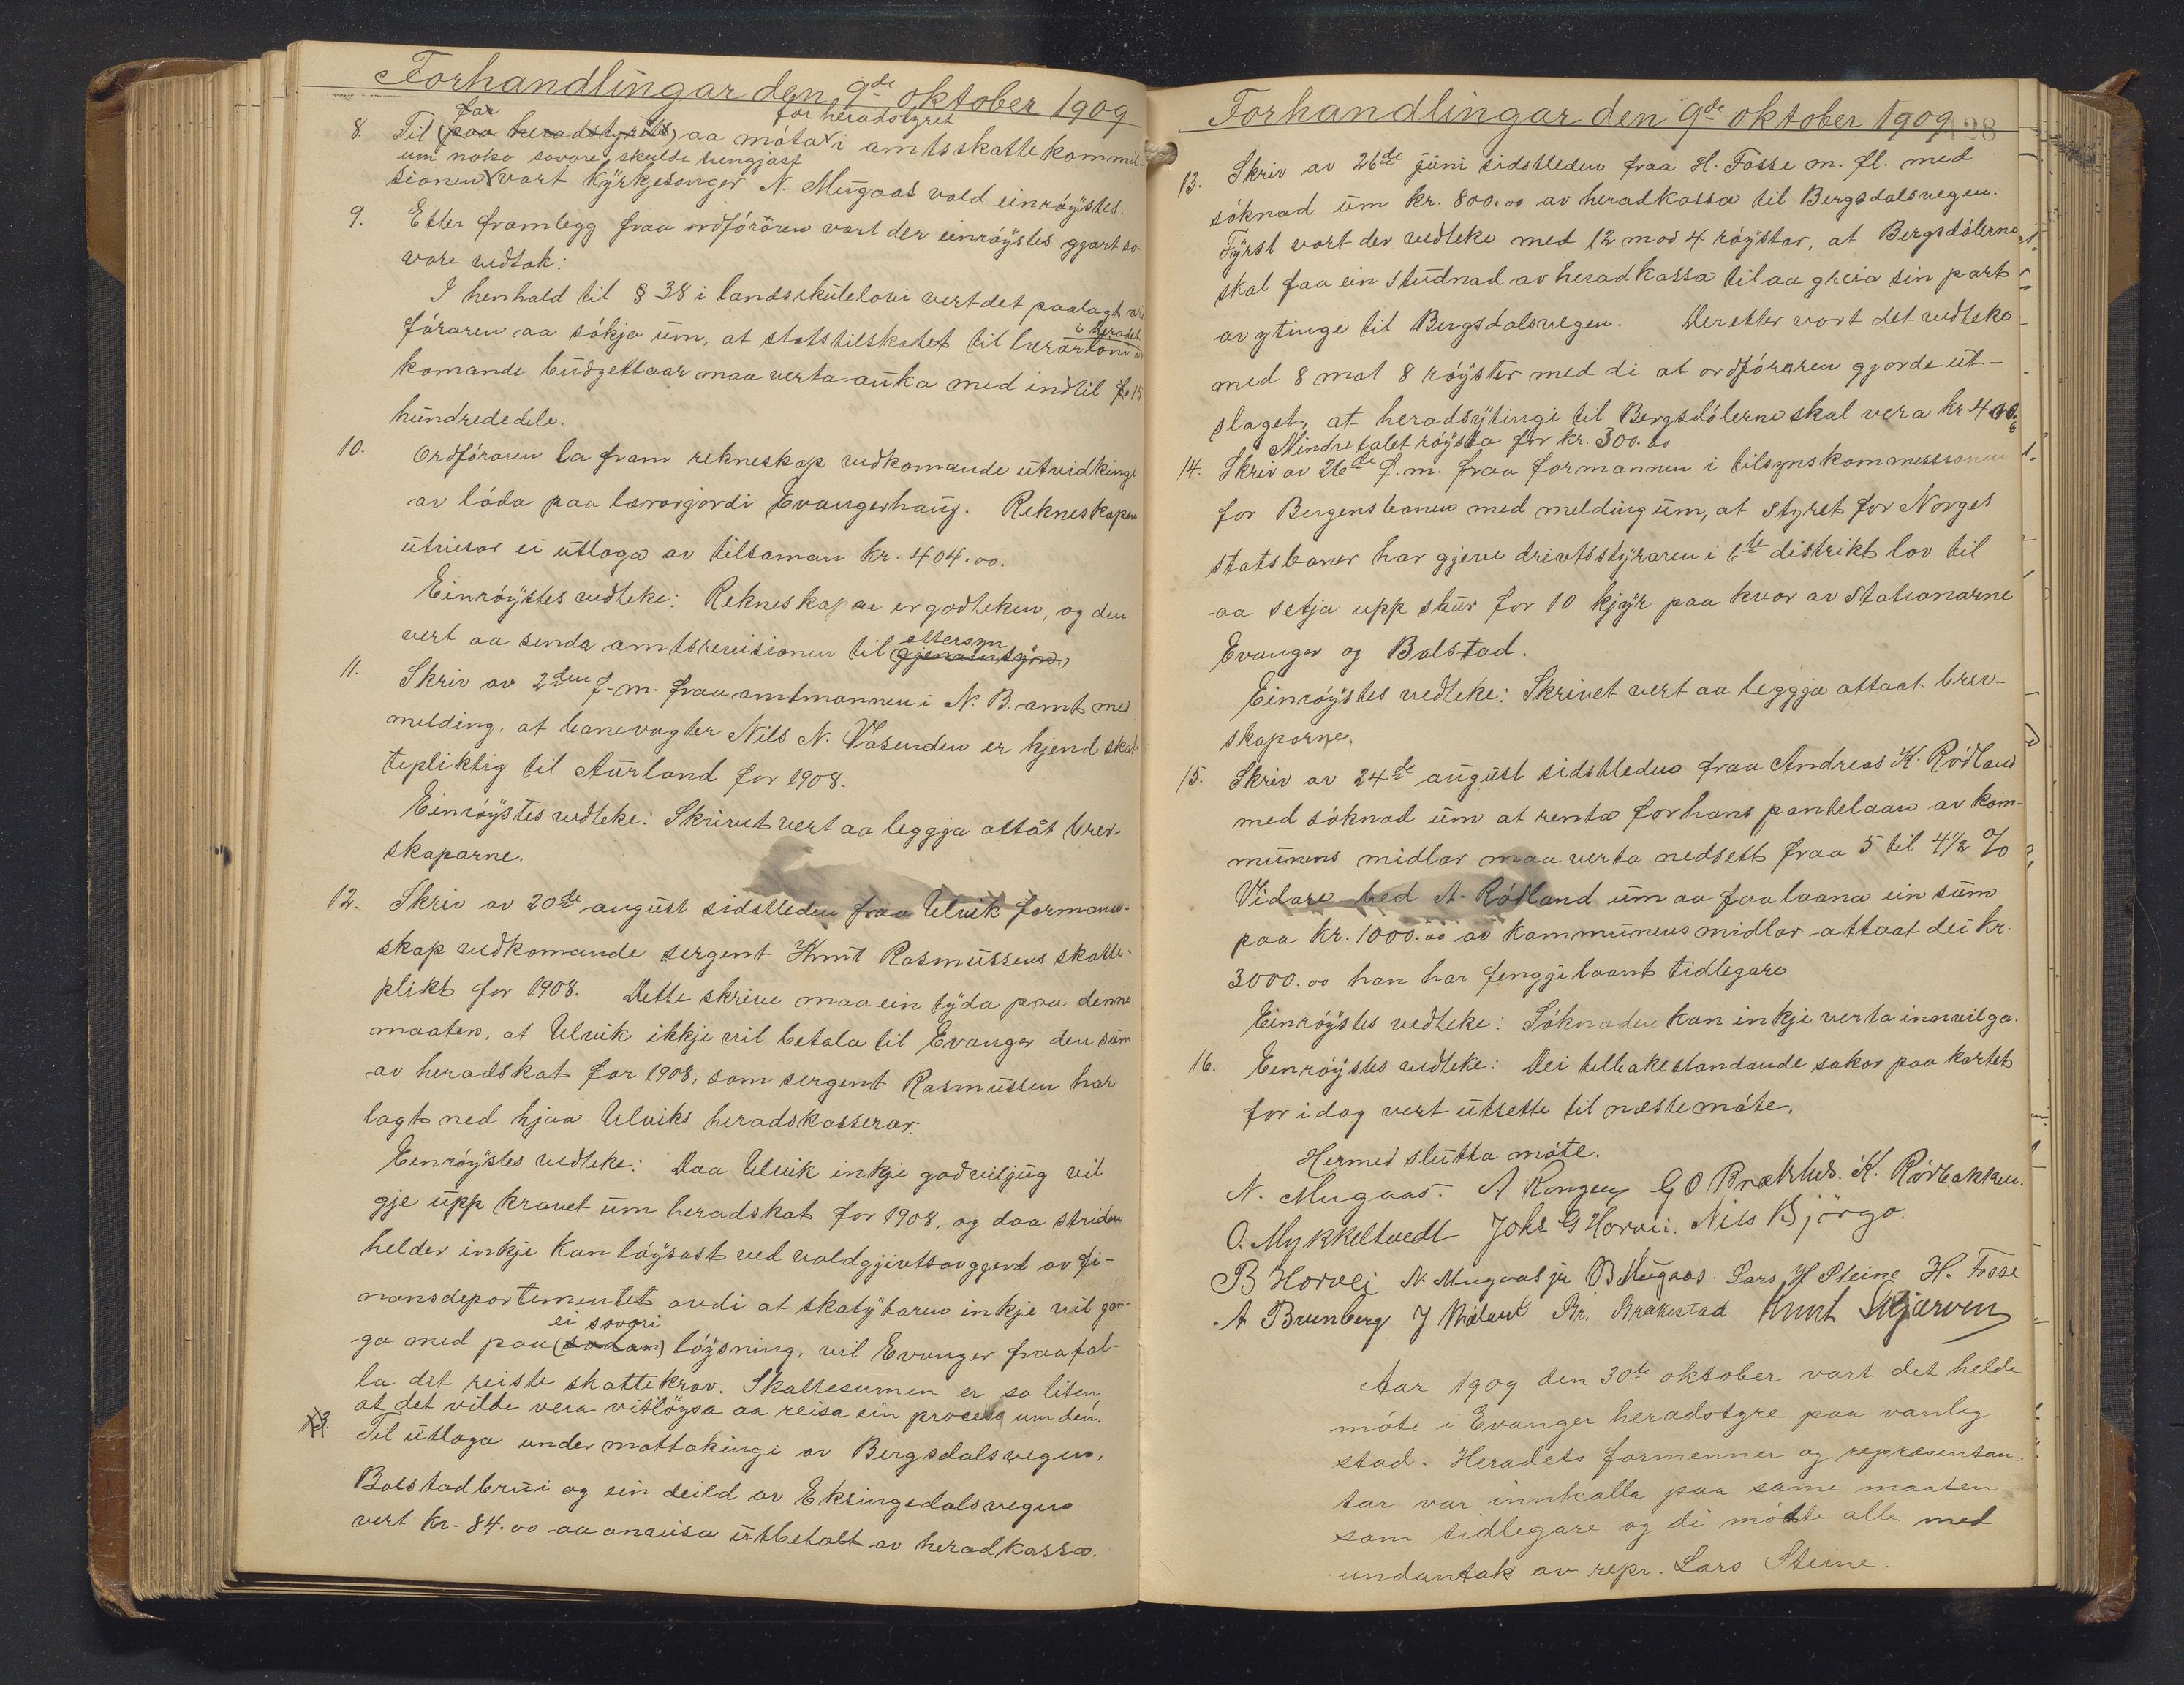 Forhandlingar den 9de oktober 1909
for
for heradstyret
8. Til (paa heradstyrets) aa møta i amtsskattekommis-
um noko sovore skulde tengjast
sionen vart Kyrkesonger N. Mügaas vald einrøystes.
9. Etter framlegg fraa ordføraren vart der einrøystes gjort so-
vore vedtak:
I henhald til § 38 i landsskulelovi vert det paalagt ord
føraren aa søkja um, at statstilskotet til lærarløni i
i heradet
komande budgettaar maa verta auka med indtil 15
hundrededele.
10. Ordføraren la fram rekneskap vedkomande utvidkingi
av løda paa lærarjordi Evangerhaug. Rekneskapen
utviser ei utloga av tilsaman kr. 404.00.
Einrøystes vedteke: Rekneskapen er godteken, og den
vert aa senda amtsrevisionen til (gjenomsyn)
ettersyn
11. Skriv av 2den f.m. fraa amtmannen i N. B. amt med
melding, at banevagter Nils N. Vasenden er kjend skat-
tepliktig til Aurland for 1908.
Einrøystes vedteke: Skrivet vert aa leggja attåt brev-
skaparne.
12. Skriv av 30de august sidstleden fraa Ulvik formann-
skap vedkomande sergent Knut Rasmussens skatte-
plikt for 1908. Dette skrive maa ein tyda paa denne
maaten, at Ulvik ikkje vil betala til Evanger den sum
av heradskat for 1908, som sergent Rasmussen har
lagt ned hjaa Ulviks heradskasserar.
Einrøystes vedteke: Daa Ulvik inkje godviljug vil
gje upp kravet um heradskat for 1908, og daa striden
helder inkje kan løysast ved voldgjivtsavgjerd av fi-
nansdepartementet avdi at skatytaren inkje vil gan-
ei sovori
ga med paa (sodan) løysning, vil Evanger fraafal-
la det reiste skattekrav. Skattesumen er so liten,
at det vilde vera vitløysa aa reisa ein process um den.
13. Til utloga under mottakingi av Bergsdalsvegen,
Bolstadbrui og ein deild av Eksingedalsvegen
vert kr. 84.00 aa anvisa utbetalt av heradkassa.
Forhandlingar den 9de oktober 1909
128
13. Skriv av 26de juni sidstleden fraa H. Fosse m. fl. med
søknad um kr. 800.00 av heradkassa til Bergsdalsvegen.
Fyrst vart der vedteke med 12 mod 4 røystar, at Bergsdølerne
skal faa ein studnad av heradkassa til aa greia sin part
av ytingi til Bergsdalsvegen. Deretter vart det vedteke
med 8 mot 8 røyster med di at ordføraren gjorde ut-
slaget, at heradsytingi til Bergsdølerne skal vera kr 400.
Mindretalet røysta for kr. 300.00
14. Skriv av 26de f.m. fraa formannen i tilsynskommessionen
for Bergensbanen med melding um, at Styret for Norges
statsbaner har gjeve drivtsstyraren i 6te distrikt lov til
aa setja upp skur for 10 kjyr paa kvar av stationarne
Evanger og Bolstad.
Einrøystes vedteke: Skrivet vert aa leggja attaat brev-
skaparne.
15. Skriv av 24de august sidstleden fraa Andreas K. Rødland
med søknad um at renta for hans pantelaan av kom-
munens midlar maa verta nedsett fraa 5 til 4 1/2 %
Vidare bed A. Rødland um aa faa laana ein sum
paa kr. 1000.00 av kommunens midlar attaat dei kr.
3000.00 han har fenggje laant tidlegare
Einrøystes vedteke: Søknaden kan inkje verta innvilga.
16. Einrøystes vedteke: Dei tilbakestandande sakor paa kartet
for idag vert utsette til næste møte.
Hermed slutta møte.
N. Mugaas. A Kongen G O Brækhus. K. Rødbakken.
O. Mykkeltvedt Johs G Horvei. Nils Bjørgo.
B Horvei N. Mugaas jr B Mügaas. Lars H Steine H. Fosse
A Brunborg J Mæland Br. Brakestad Knut Skjerven
Aar 1909 den 30te oktober vart det helde
møte i Evanger heradstyre paa vanleg
stad. Heradets formenner og representan-
tar var innkalla paa same maaten
som tidlegare og di møtte alle med
undantak av repr. Lars Steine.